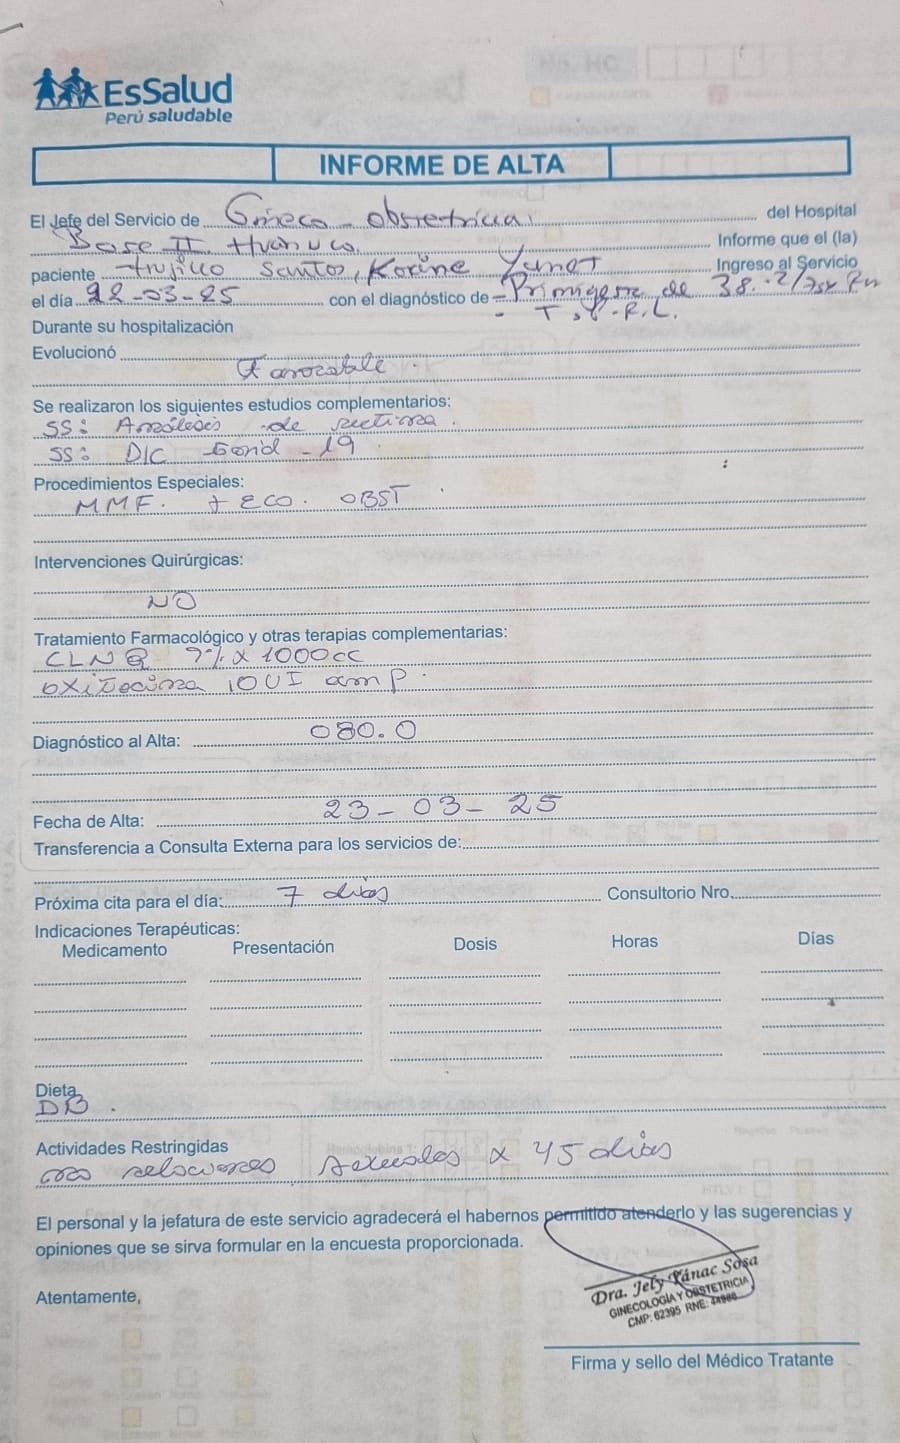 EsSalud
Perú saludable
INFORME DE ALTA
El Jefe del Servicio de Gineco - obstetricia del Hospital
Base II Huánuco. Informe que el (la)
paciente Trujillo Santos, Korine Yanet Ingreso al Servicio
el día 22-03-25 con el diagnóstico de - Primigesta de 38. 2/7
Durante su hospitalización - T.
Evolucionó
Favorable.
Se realizaron los siguientes estudios complementarios:
SS: Análisis de rutina.
SS: D/C Covid - 19.
Procedimientos Especiales:
MMF. + ECO. OBST
Intervenciones Quirúrgicas:
NO
Tratamiento Farmacológico y otras terapias complementarias:
9% x 1000cc
oxitocina 10UI amp.
Diagnóstico al Alta: 080.0
Fecha de Alta: 23-03-25
Transferencia a Consulta Externa para los servicios de:
Próxima cita para el día: 7 días Consultorio Nro.
Indicaciones Terapéuticas:
Medicamento Presentación Dosis Horas Días
Dieta
DB.
Actividades Restringidas
no relaciones sexuales x 45 días
El personal y la jefatura de este servicio agradecerá el habernos permitido atenderlo y las sugerencias y
opiniones que se sirva formular en la encuesta proporcionada.
Atentamente,
Dra. Jely Yánac Sosa
GINECOLOGÍA Y OBSTETRICIA
CMP: 62395 RNE:
Firma y sello del Médico Tratante